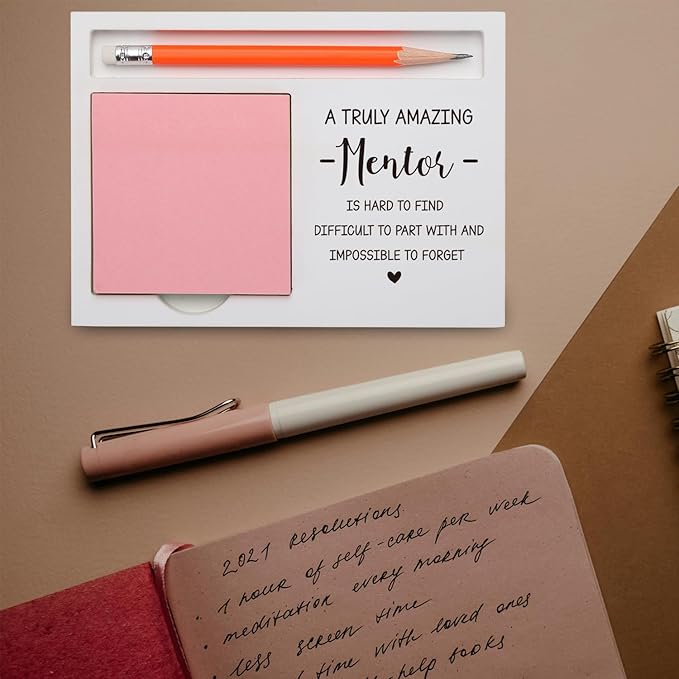 A TRULY AMAZING
- Mentor -
IS HARD TO FIND
DIFFICULT TO PART WITH AND
IMPOSSIBLE TO FORGET
2021 resolutions
• 1 hour of self-care per week
• meditation every morning
• less screen time
time with loved ones
help books